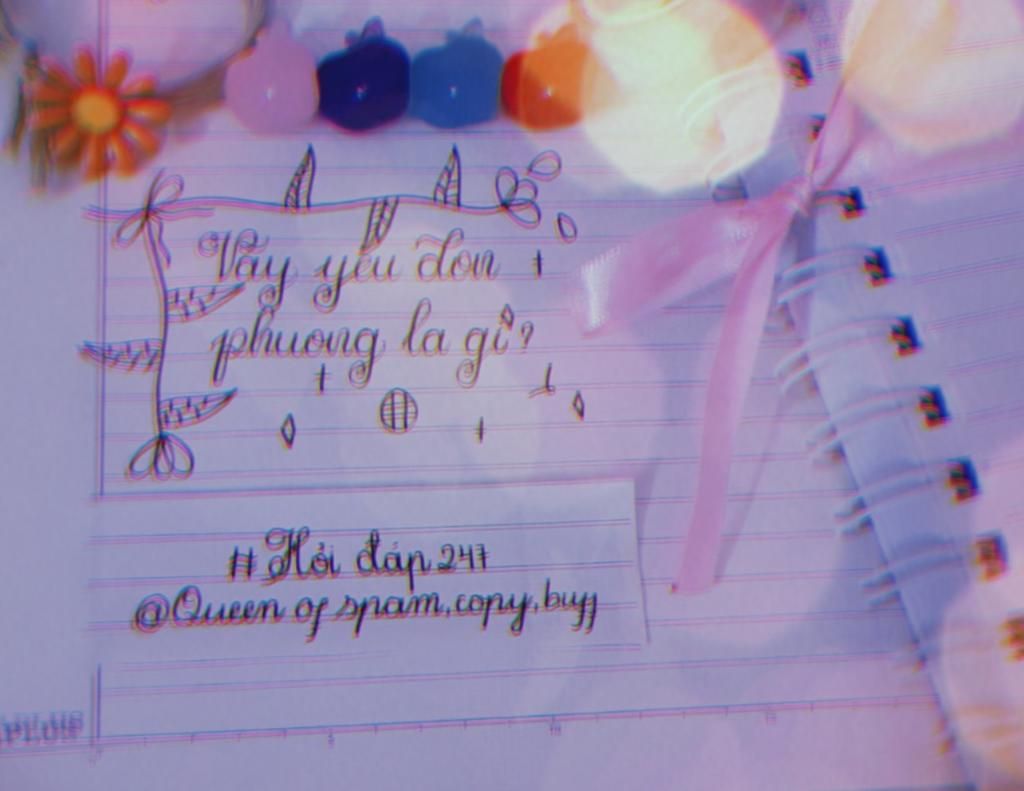 Vậy yêu đơn
phương la gì?
#Hỏi đáp 247
@Queen of spam, copy, buff